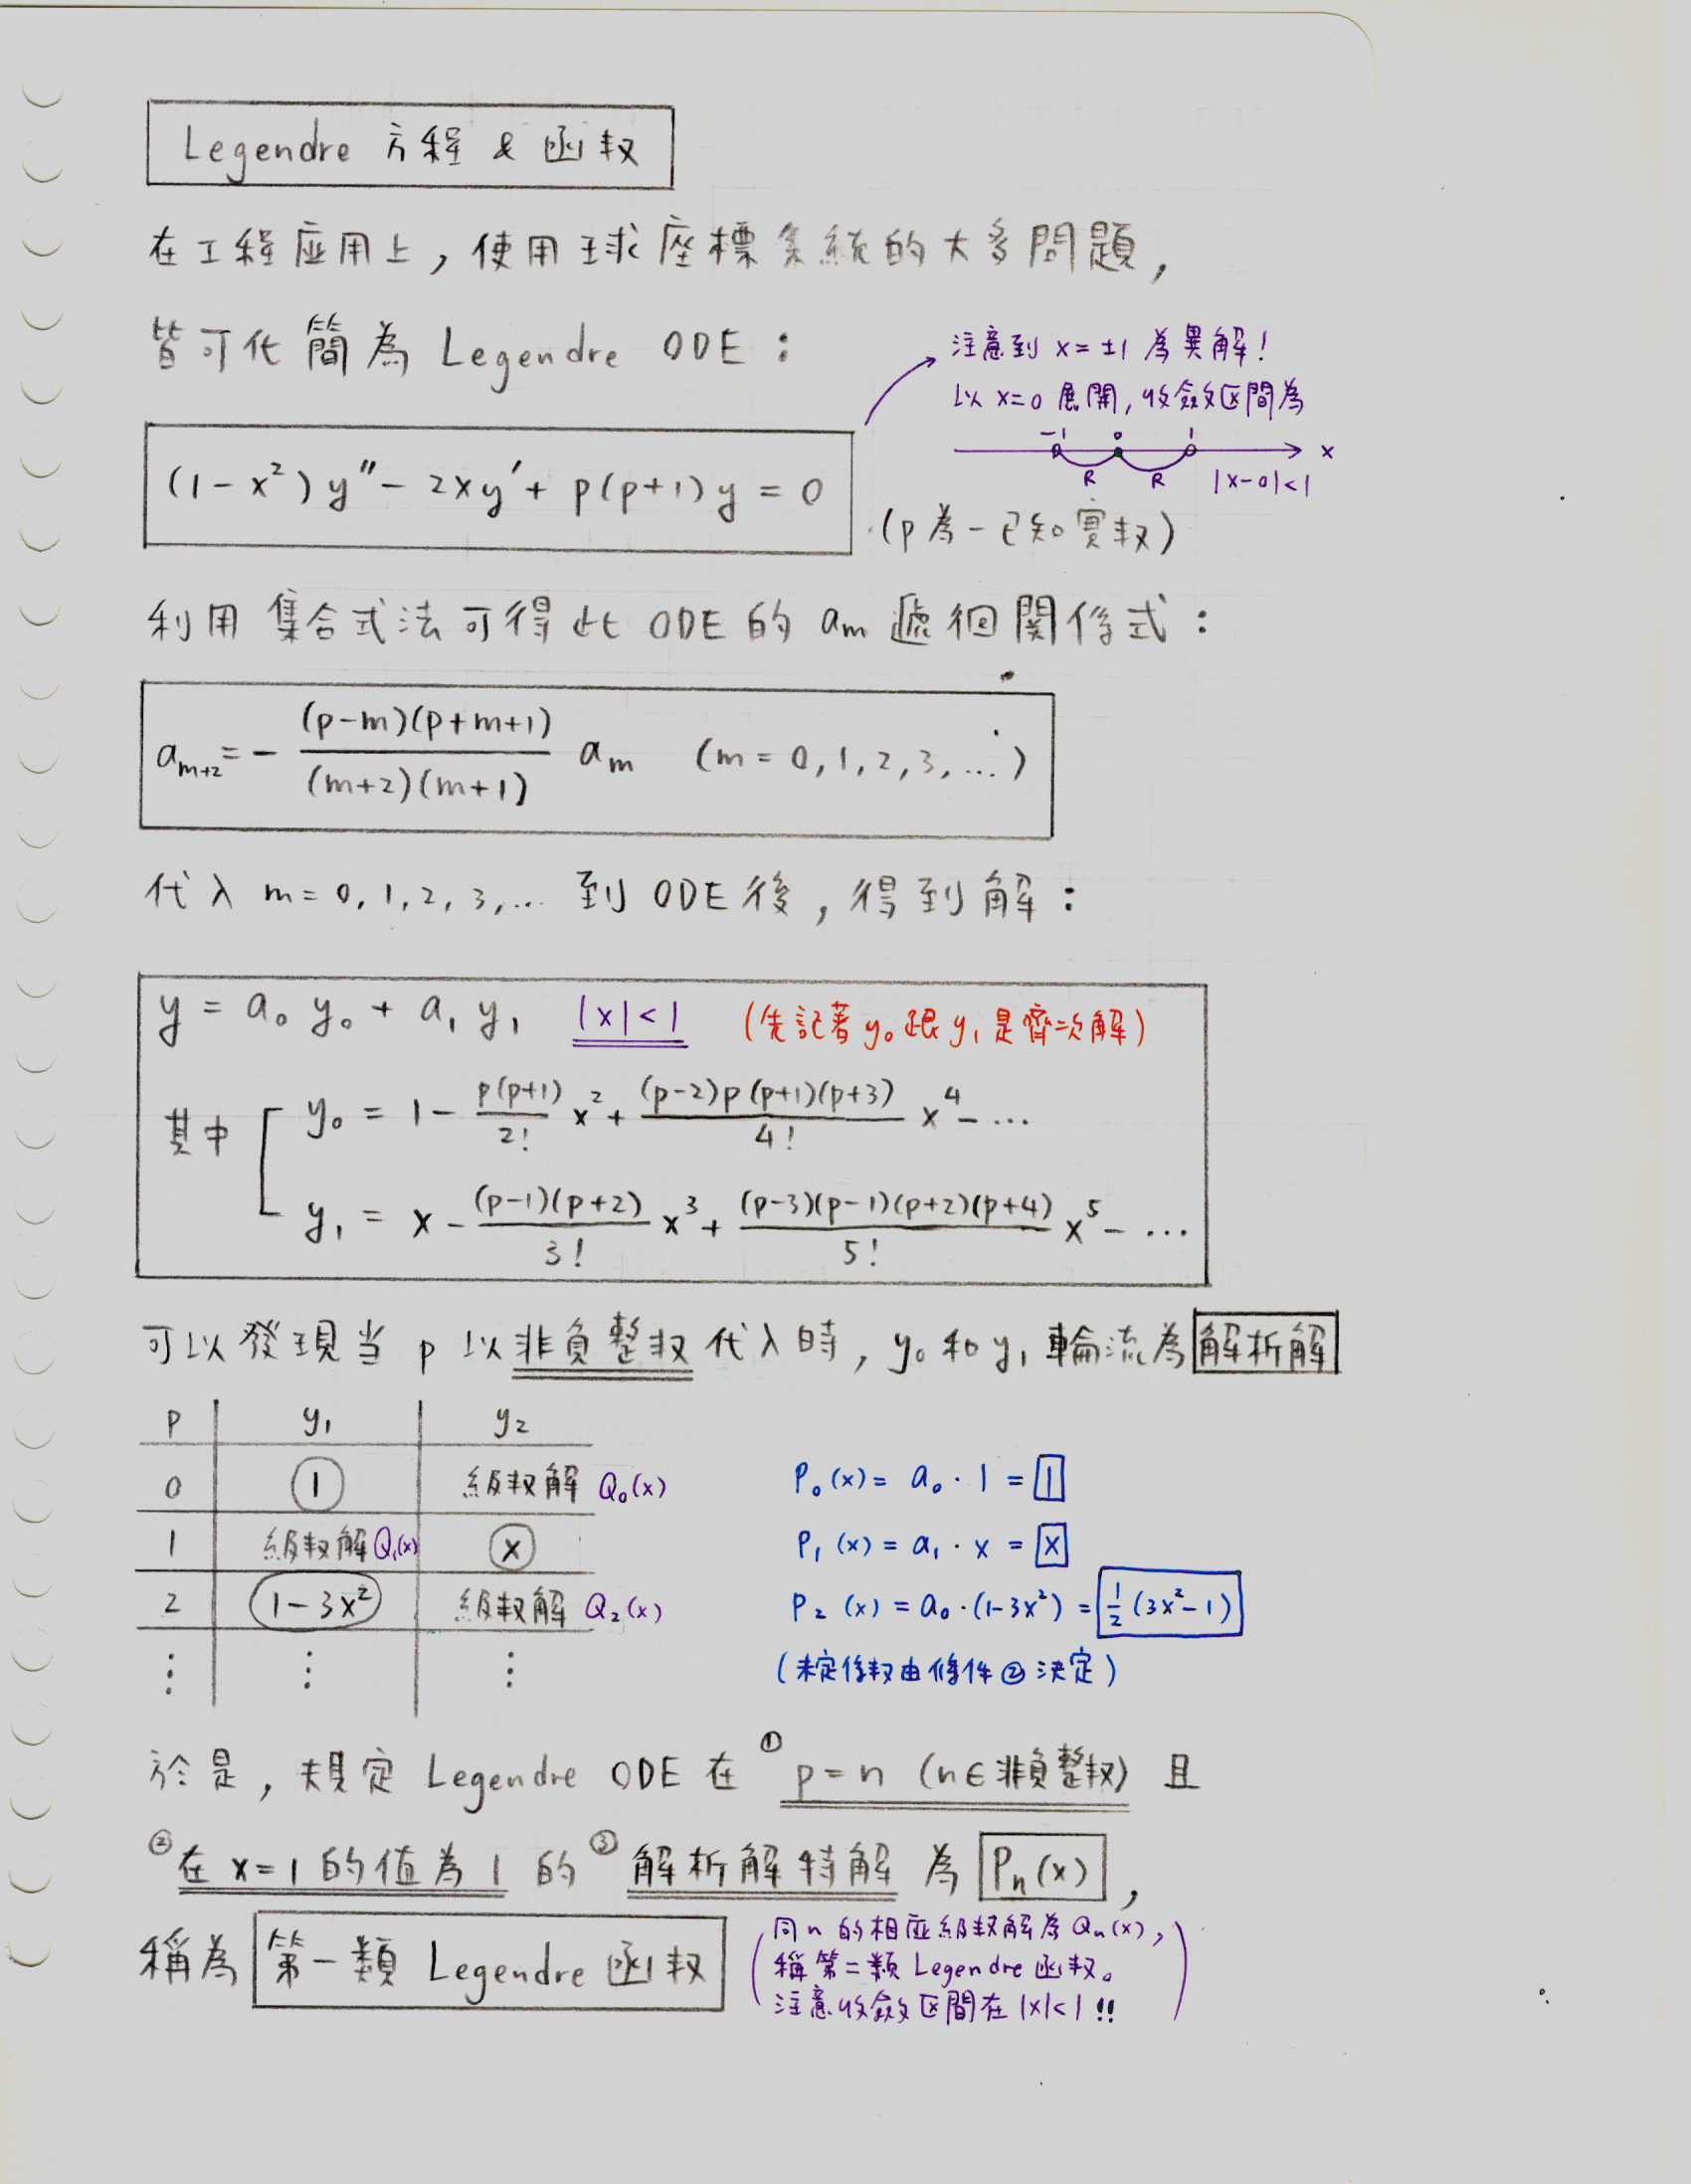 Legendre 方程 & 函数
在工程应用上，使用球座標系統的大多問題，
皆可化簡為 Legendre ODE：
注意到 x = ±1 為異解！
以 x=0 展開，收斂区間為
-1 0 1 x
R R |x-0|<1
(1-x²)y″ - 2xy′ + p(p+1)y = 0
(p 為一已知實数)
利用 集合式法可得此 ODE 的 aₘ 遞徊関係式：
aₘ₊₂ = - (p-m)(p+m+1) / (m+2)(m+1) aₘ (m = 0, 1, 2, 3, ...)
代入 m = 0, 1, 2, 3, ... 到 ODE 後，得到解：
y = a₀ y₀ + a₁ y₁ |x|<1 (先記著 y₀ 跟 y₁ 是齊次解)
其中 y₀ = 1 - p(p+1)/2! x² + (p-2)p(p+1)(p+3)/4! x⁴ - ...
y₁ = x - (p-1)(p+2)/3! x³ + (p-3)(p-1)(p+2)(p+4)/5! x⁵ - ...
可以發現当 p 以非負整数代入時，y₀ 和 y₁ 輪流為解析解
p y₁ y₂
0 1 級数解 Q₀(x)
1 級数解 Q₁(x) x
2 1-3x² 級数解 Q₂(x)
⋮ ⋮ ⋮
P₀(x) = a₀ · 1 = 1
P₁(x) = a₁ · x = x
P₂(x) = a₀ · (1-3x²) = 1/2 (3x²-1)
(未定係数由條件②決定)
於是，規定 Legendre ODE 在 ① p = n (n∈非負整数) 且
②在 x=1 的值為 1 的 ③解析解特解 為 Pₙ(x)，
稱為 第一類 Legendre 函数
(同 n 的相应級数解為 Qₙ(x)，
稱第二類 Legendre 函数。
注意收斂区間在 |x|<1 !!)